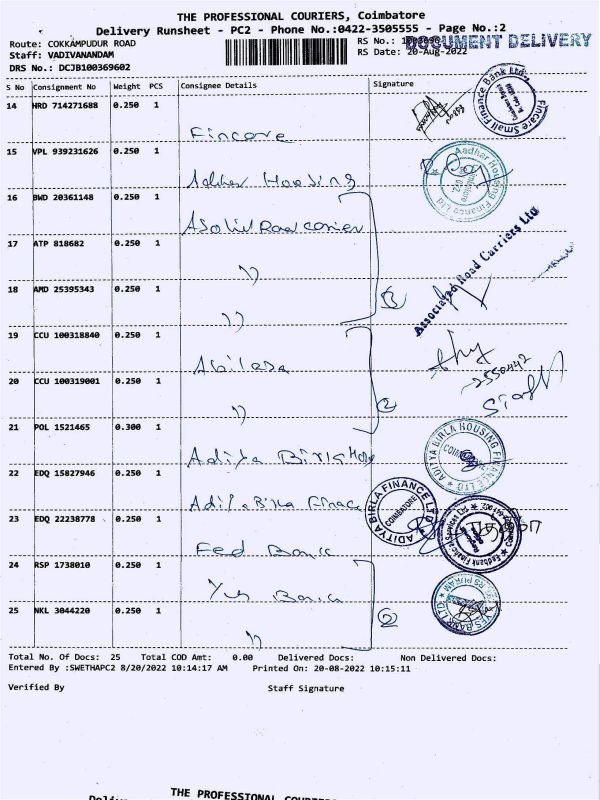 THE PROFESSIONAL COURIERS, Coimbatore
Delivery Runsheet - PC2 - Phone No.:0422-3505555 - Page No.:2
Route: COKKAMPUDUR ROAD RS No.:
DOCUMENT DELIVERY
Staff: VADIVANANDAM RS Date: 20-Aug-2022
DRS No.: DCJB100369602
S No Consignment No Weight PCS Consignee Details Signature
14 HRD 714271688 0.250 1 Fincare
Fincare Small Finance Bank Ltd.
15 VPL 939231626 0.250 1 Adhar Housing
Aadhar Housing Finance Ltd
16 BWD 20361148 0.250 1
17 ATP 818682 0.250 1 ")
18 AMD 25395343 0.250 1 ")
3
Associated Road Carriers Ltd
19 CCU 100318840 0.250 1
20 CCU 100319001 0.250 1 ")
2
2550442
21 POL 1521465 0.300 1 Aditya Birla
ADITYA BIRLA HOUSING FINANCE LTD
22 EDQ 15827946 0.250 1 Aditya Birla Finace
ADITYA BIRLA FINANCE LTD
COIMBATORE
23 EDQ 22238778 0.250 1 Fed Bank
Fedbank Financial Services Ltd
24 RSP 1738010 0.250 1 Yes Bank
YES BANK LTD
25 NKL 3044220 0.250 1 ")
2
Total No. Of Docs: 25 Total COD Amt: 0.00 Delivered Docs: Non Delivered Docs:
Entered By :SWETHAPC2 8/20/2022 10:14:17 AM Printed On: 20-08-2022 10:15:11
Verified By Staff Signature
THE PROFESSIONAL COURIERS